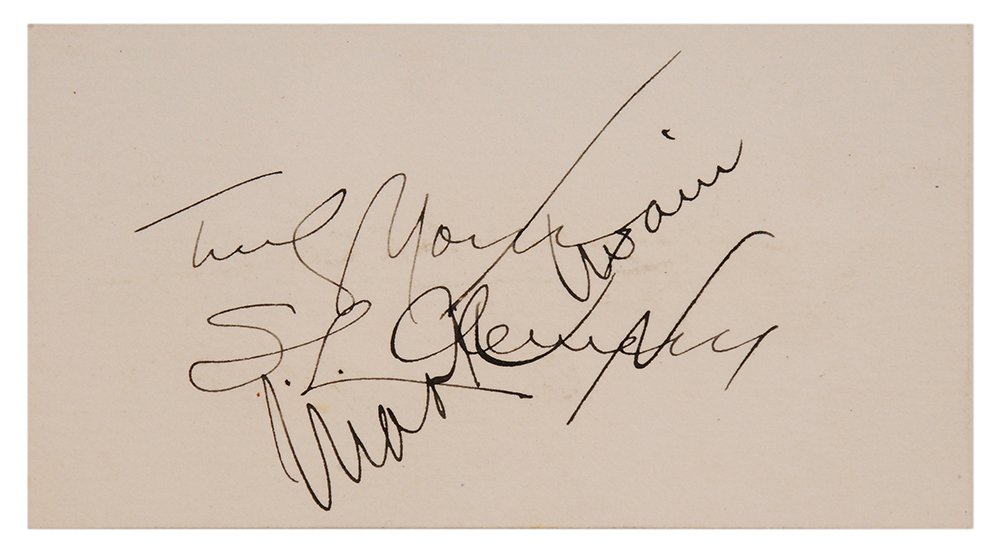 Truly Yours
S. L. Clemens
Mark Twain